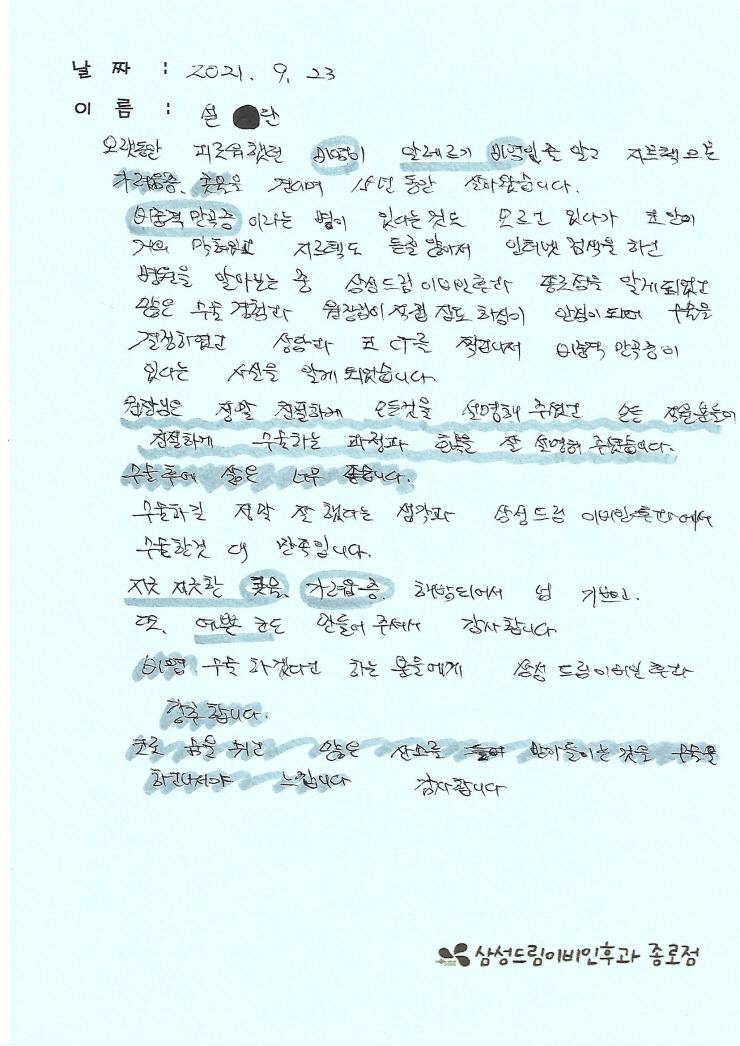 날 짜 : 2021. 9. 23
이 름 : 설 란
오랫동안 괴로워했던 비염이 알레르기 비염일줄 알고 지르텍으로
가려움증, 콧물을 견디며 십년 동안 살아왔습니다.
비중격 만곡증 이라는 병이 있다는 것도 모르고 있다가 코안이
거의 막혀있고 지르텍도 듣질 않아서 인터넷 검색을 하고
병원을 알아보는 중 삼성드림이비인후과 종로점을 알게되었고
많은 수술 경험과 원장님이 직접 집도 하심이 안심이 되어 수술을
결정하였고 상담과 코 CT를 찍고나서 비중격 만곡증이
있다는 사실을 알게 되었습니다.
원장님은 정말 친절하게 모든것을 설명해 주셨고 모든 직원분들이
친절하게 수술하는 과정과 회복을 잘 설명해 주셨습니다.
수술후에 삶은 너무 좋습니다.
수술하길 정말 잘 했다는 생각과 삼성드림 이비인후과에서
수술한것 대 만족입니다.
지긋 지긋한 콧물, 가려움증, 해방되어서 넘 기쁘고,
또, 예쁜 코도 만들어 주셔서 감사합니다
비염 수술 하겠다고 하는 분들에게 삼성 드림이비인후과
강추 합니다.
코로 숨을 쉬고 많은 산소를 받아들이는 것을 수술을
하고나서야 느낍니다 감사합니다
삼성드림이비인후과 종로점